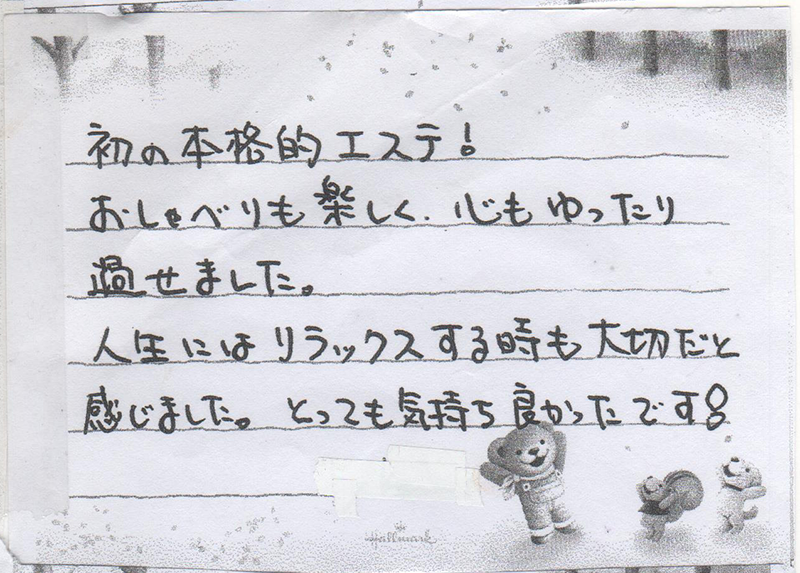 初の本格的エステ!
おしゃべりも楽しく、心もゆったり
過せました。
人生にはリラックスする時も大切だと
感じました。とっても気持ち良かったです!
Hallmark